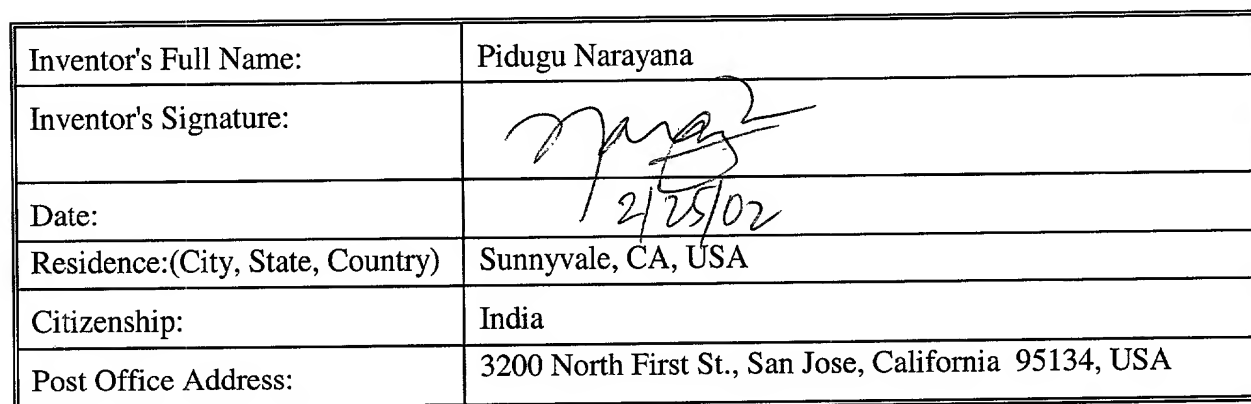 Inventor's Full Name: Pidugu Narayana
Inventor's Signature:
Date: 2/25/02
Residence:(City, State, Country) Sunnyvale, CA, USA
Citizenship: India
Post Office Address: 3200 North First St., San Jose, California 95134, USA